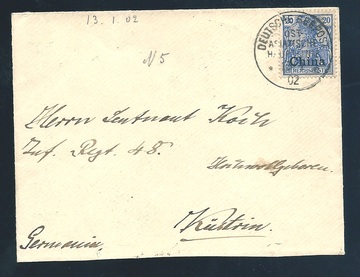 13. 1. 02
N 5
DEUTSCHE SEEPOST
OST-
ASIATISCHE
02
20
China
REICHSPOST
Herrn Leutnant Koch
Inf. Regt. 48.
Hochwohlgeboren.
Küstrin.
Germania